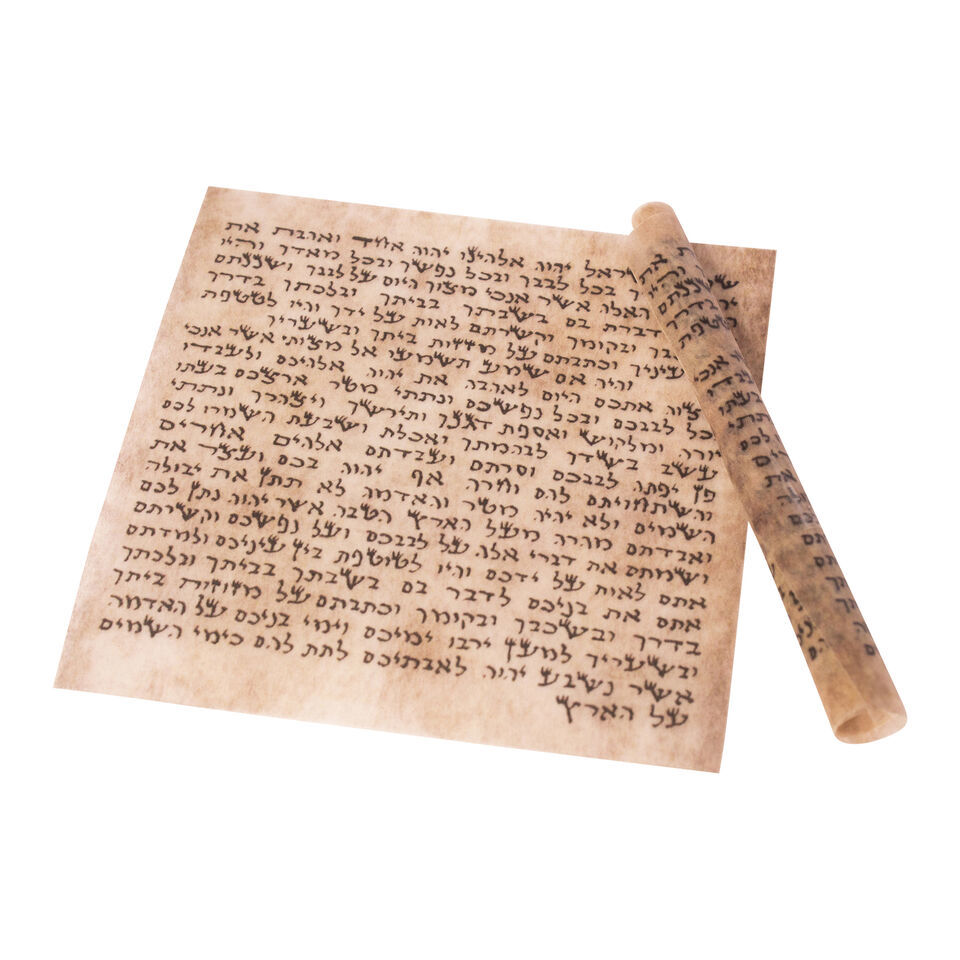 יהוה אלהינו יהוה אחד ואהבת את
בכל לבבך ובכל נפשך ובכל מאדך והיו
האלה אשר אנכי מצוך היום על לבבך ושננתם
ודברת בם בשבתך בביתך ובלכתך בדרך
ובקומך וקשרתם לאות על ידך והיו לטטפת
עיניך וכתבתם על מזזות ביתך ובשעריך
והיה אם שמע תשמעו אל מצותי אשר אנכי
מצוה אתכם היום לאהבה את יהוה אלהיכם ולעבדו
בכל לבבכם ובכל נפשכם ונתתי מטר ארצכם בעתו
יורה ומלקוש ואספת דגנך ותירשך ויצהרך ונתתי
עשב בשדך לבהמתך ואכלת ושבעת השמרו לכם
פן יפתה לבבכם וסרתם ועבדתם אלהים אחרים
והשתחויתם להם וחרה אף יהוה בכם ועצר את
השמים ולא יהיה מטר והאדמה לא תתן את יבולה
ואבדתם מהרה מעל הארץ הטבה אשר יהוה נתן לכם
ושמתם את דברי אלה על לבבכם ועל נפשכם וקשרתם
אתם לאות על ידכם והיו לטוטפת בין עיניכם ולמדתם
אתם את בניכם לדבר בם בשבתך בביתך ובלכתך
בדרך ובשכבך ובקומך וכתבתם על מזוזות ביתך
ובשעריך למען ירבו ימיכם וימי בניכם על האדמה
אשר נשבע יהוה לאבתיכם לתת להם כימי השמים
על הארץ